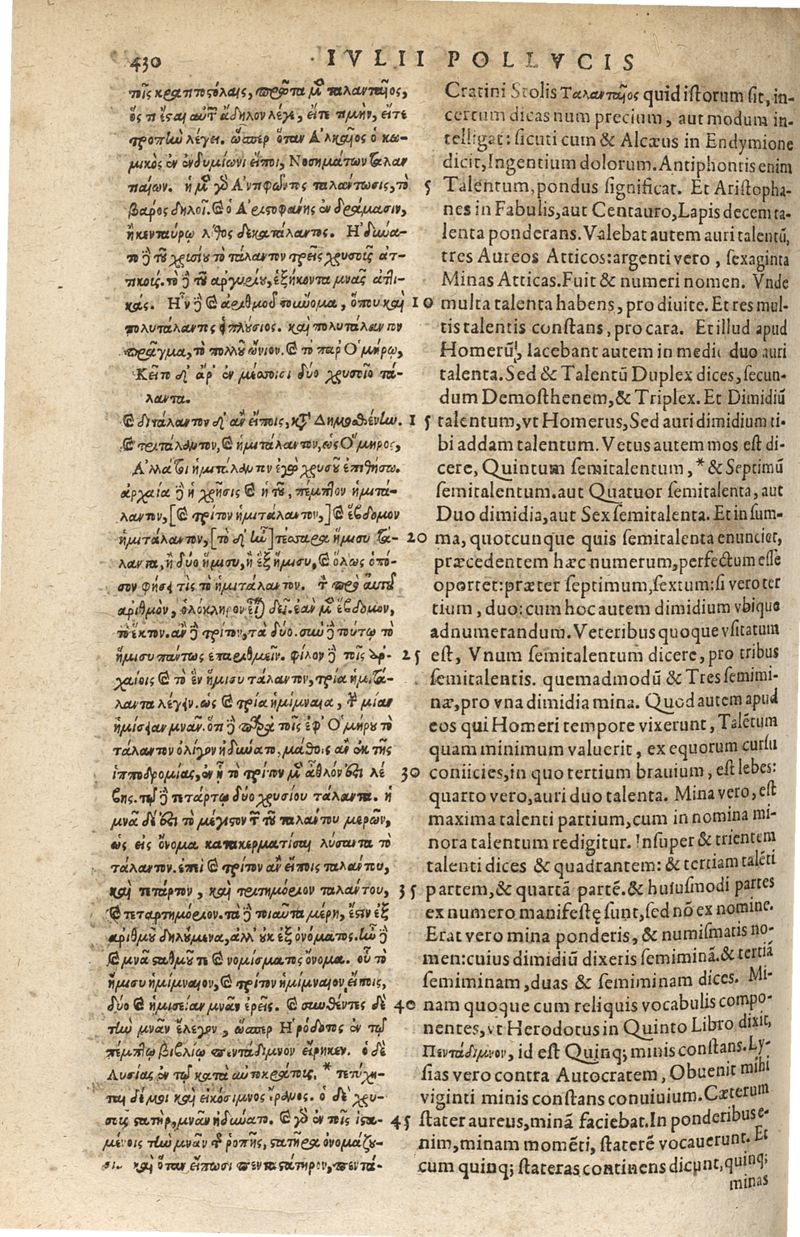 430
IVLII POLLVCIS
τοῖς κραππςόλαις, πρῶτα μὲν ταλανταῖος,
ὅς τι ἔςαι αὐτῶν ἄδηλον λέγει, εἴτε τιμὴν, εἴτε
τροπὴν λέγει. ὥσπερ ὅταν Αλκαῖος ὁ κω-
μικὸς ἐν ἐνδυμίωνι εἴποι, Νοσημάτων ταλαν
παίων. ἡ μὲν γὸ Αντιφῶντος ταλάντωσις, τὸ
βάρος δηλοῖ. καὶ ὁ Αριςοφάνης ἐν δράμασιν,
ἢ κενταύρῳ λίθος δεκατάλαντος. Ηδύνα-
το δὲ τοῦ χρυσίου τὸ τάλαντον τρεῖς χρυσοῦς ἀτ-
τικοὺς. τὸ δὲ τοῦ ἀργυρίου, ἑξήκοντα μνᾶς ἀττι-
κάς. Ην δὲ καὶ ἀριθμοῦ τοὔνομα, ὅπου καὶ
πολυτάλαντος ὁ πλούσιος. καὶ πολυτάλαντον
πρᾶγμα, τὸ πολλοῦ ὤνιον. καὶ τὸ παρ Ομήρῳ,
Κεῖτο δ᾽ ἄρ᾽ ἐν μέσοισι δύο χρυσοῖο τά-
λαντα.
καὶ διτάλαντον δ᾽ ἂν εἴποις, κατὰ Δημοσθένην.
καὶ τριτάλαντον, καὶ ἡμιτάλαντον, ὡς Ομηρος,
Αλλά τοι ἡμιτάλαντον ἐγὼ χρυσοῦ ἐπιθήσω.
ἀρχαία δὲ ἡ χρῆσις καὶ ἡ τοῦ, πέμπτον ἡμιτά-
λαντον, [καὶ τρίτον ἡμιτάλαντον,] καὶ ἕβδομον
ἡμιτάλαντον, [τὸ δ᾽ ἦν] τέσσαρα ἥμισυ τά-
λαντα, ἢ δύο ἥμισυ, ἢ ἓξ ἥμισυ, καὶ ὅλως ὁπό-
σον φήσει τις τὸ ἡμιτάλαντον. τὸν πρὸ αὐτοῦ
ἀριθμὸν, ὁλόκληρον εἶναι δεῖ. ἐὰν μὲν ἕβδομον,
τὸ ἕκτον. ἂν δὲ τρίτον, τὰ δύο. σὺν δὲ τούτῳ τὸ
ἥμισυ πάντως ἐπαριθμεῖν. φίλον δὲ τοῖς ἀρ-
χαίοις καὶ τὸ ἓν ἥμισυ τάλαντον, τρία ἡμιτά-
λαντα λέγειν. ὡς καὶ τρία ἡμίμναια, τὴν μίαν
ἡμίσειαν μνᾶν. ὅτι δὲ παρὰ τοῖς ἐφ᾽ Ομήρου τὸ
τάλαντον ὀλίγον ἠδύνατο, μάθοις ἂν ἐκ τῆς
ἱπποδρομίας, ἐν ᾗ τὸ τρίτον μὲν ἆθλόν ἐςι λέ
βης. τῷ δὲ τετάρτῳ δύο χρυσίου τάλαντα. ἡ
μνᾶ δέ ἐςι τὸ μέγιςον τῶν τοῦ ταλάντου μερῶν,
ὡς εἰς ὄνομα κατακερματίσαι λύσαντα τὸ
τάλαντον. ἐπεὶ καὶ τρίτον ἂν εἴποις ταλάντου,
καὶ τέταρτον, καὶ τριτημόριον ταλάντου,
καὶ τεταρτημόριον. τὰ δὲ τοιαῦτα μέρη, ἔςιν ἐξ
ἀριθμοῦ δηλούμενα, ἀλλ᾽ οὐκ ἐξ ὀνόματος. ἦν δὲ
καὶ μνᾶ ςαθμοῦ τε καὶ νομίσματος ὄνομα. οὗ τὸ
ἥμισυ ἡμίμναιον, καὶ τρίτον ἡμίμναιον εἴποις,
δύο καὶ ἡμίσειαν μνᾶν ἐρεῖς. καὶ συνθέντες δὲ
τὴν μνᾶν ἔλεγον, ὥσπερ Ηρόδοτος ἐν τῷ
πέμπτῳ βιβλίῳ πεντάμνουν εἴρηκεν. ὁ δὲ
Λυσίας ἐν τῷ κατὰ αὐτοκράτους, * τετύχη-
ται δέ μοι καὶ εἰκοσίμνους ἔρανος. ὁ δὲ χρυ-
σοῦς ςατὴρ, μνᾶν ἠδύνατο. καὶ γὸ ἐν τοῖς ἱςα-
μένοις τὴν μνᾶν τῇ ῥοπῆς, ςατῆρα ὀνομάζου-
σι. καὶ ὅταν εἴπωσι πενταςάτηρον, πεντά-
5
10
15
20
25
30
35
40
45
Cratini Scolis Ταλανταῖος quid istorum sit, in-
certum dicas num precium, aut modum in-
telligat: sicuti cum & Alcæus in Endymione
dicit, Ingentium dolorum. Antiphontis enim
Talentum, pondus significat. Et Aristopha-
nes in Fabulis, aut Centauro, Lapis decem ta-
lenta ponderans. Valebat autem auri talentũ,
tres Aureos Atticos: argenti vero, sexaginta
Minas Atticas. Fuit & numeri nomen. Vnde
multa talenta habens, pro diuite. Et res mul-
tis talentis constans, pro cara. Et illud apud
Homerũ, Iacebant autem in medio duo auri
talenta. Sed & Talentũ Duplex dices, secun-
dum Demosthenem, & Triplex. Et Dimidiũ
talentum, vt Homerus, Sed auri dimidium ti-
bi addam talentum. Vetus autem mos est di-
cere, Quintum semitalentum, * & Septimũ
semitalentum. aut Quatuor semitalenta, aut
Duo dimidia, aut Sex semitalenta. Et in sum-
ma, quotcunque quis semitalenta enunciet,
præcedentem hæc numerum, perfectum esse
oportet: præter septimum, sextum: si vero ter
tium, duo: cum hoc autem dimidium vbique
adnumerandum. Veteribus quoque vsitatum
est, Vnum semitalentum dicere, pro tribus
semitalentis. quemadmodũ & Tres semimi-
næ, pro vna dimidia mina. Quod autem apud
eos qui Homeri tempore vixerunt, Talẽtum
quam minimum valuerit, ex equorum cursu
coniicies, in quo tertium brauium, est lebes:
quarto vero, auri duo talenta. Mina vero, est
maxima talenti partium, cum in nomina mi-
nora talentum redigitur. Insuper & trientem
talenti dices & quadrantem: & tertiam talẽti
partem, & quartã partẽ. & huiusmodi partes
ex numero manifestę sunt, sed nõ ex nomine.
Erat vero mina ponderis, & numismatis no-
men: cuius dimidiũ dixeris semiminã. & tertiã
semiminam, duas & semiminam dices. Mi-
nam quoque cum reliquis vocabulis compo-
nentes, vt Herodotus in Quinto Libro dixit,
Πεντάδιμνον, id est Quinq; minis constans. Ly-
sias vero contra Autocratem, Obuenit mihi
viginti minis constans conuiuium. Cæterum
stater aureus, minã faciebat. In ponderibus e-
nim, minam momẽti, staterẽ vocauerunt. Et
cum quinq; stateras continens dicunt, quinq;
minas